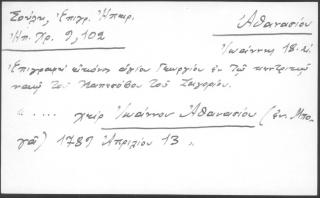 Σούλη, Ἐπιγρ. Ἠπειρ.
Ἠπ. Χρ. 9, 102
Ἀθανασίου
Ἰωάννης 18. αἰ
Ἐπιγραφὴ εἰκόνος ἁγίου Γεωργίου ἐν τῷ κεντρικῷ
ναῷ τοῦ Καπεσόβου τοῦ Ζαγορίου.
" .... χεὶρ Ἰωάννου Ἀθανασίου (ἐν.
1789 Ἀπριλίου 13 "